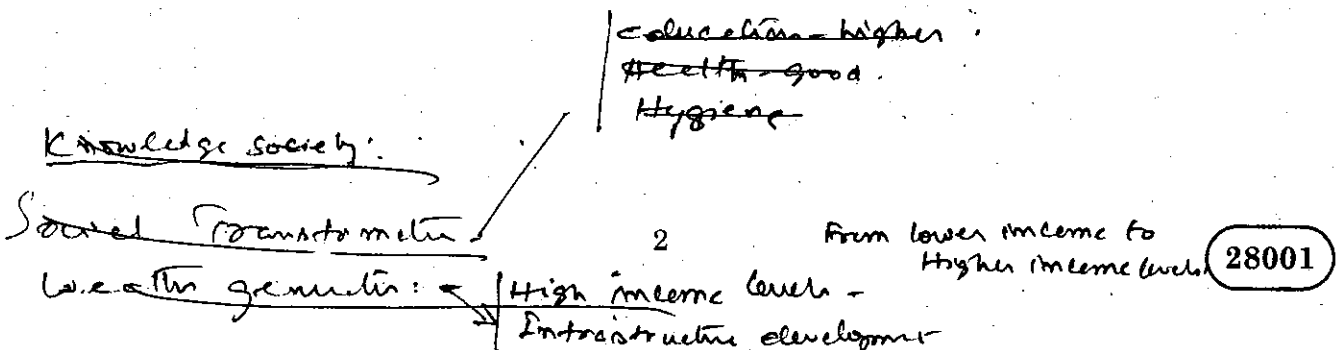 Education - higher.
Health - good.
Hygiene
Knowledge society:
Social Transformation -
2
From lower income to
Higher income levels
28001
Wealth generation: -
High income levels -
Infrastructure development